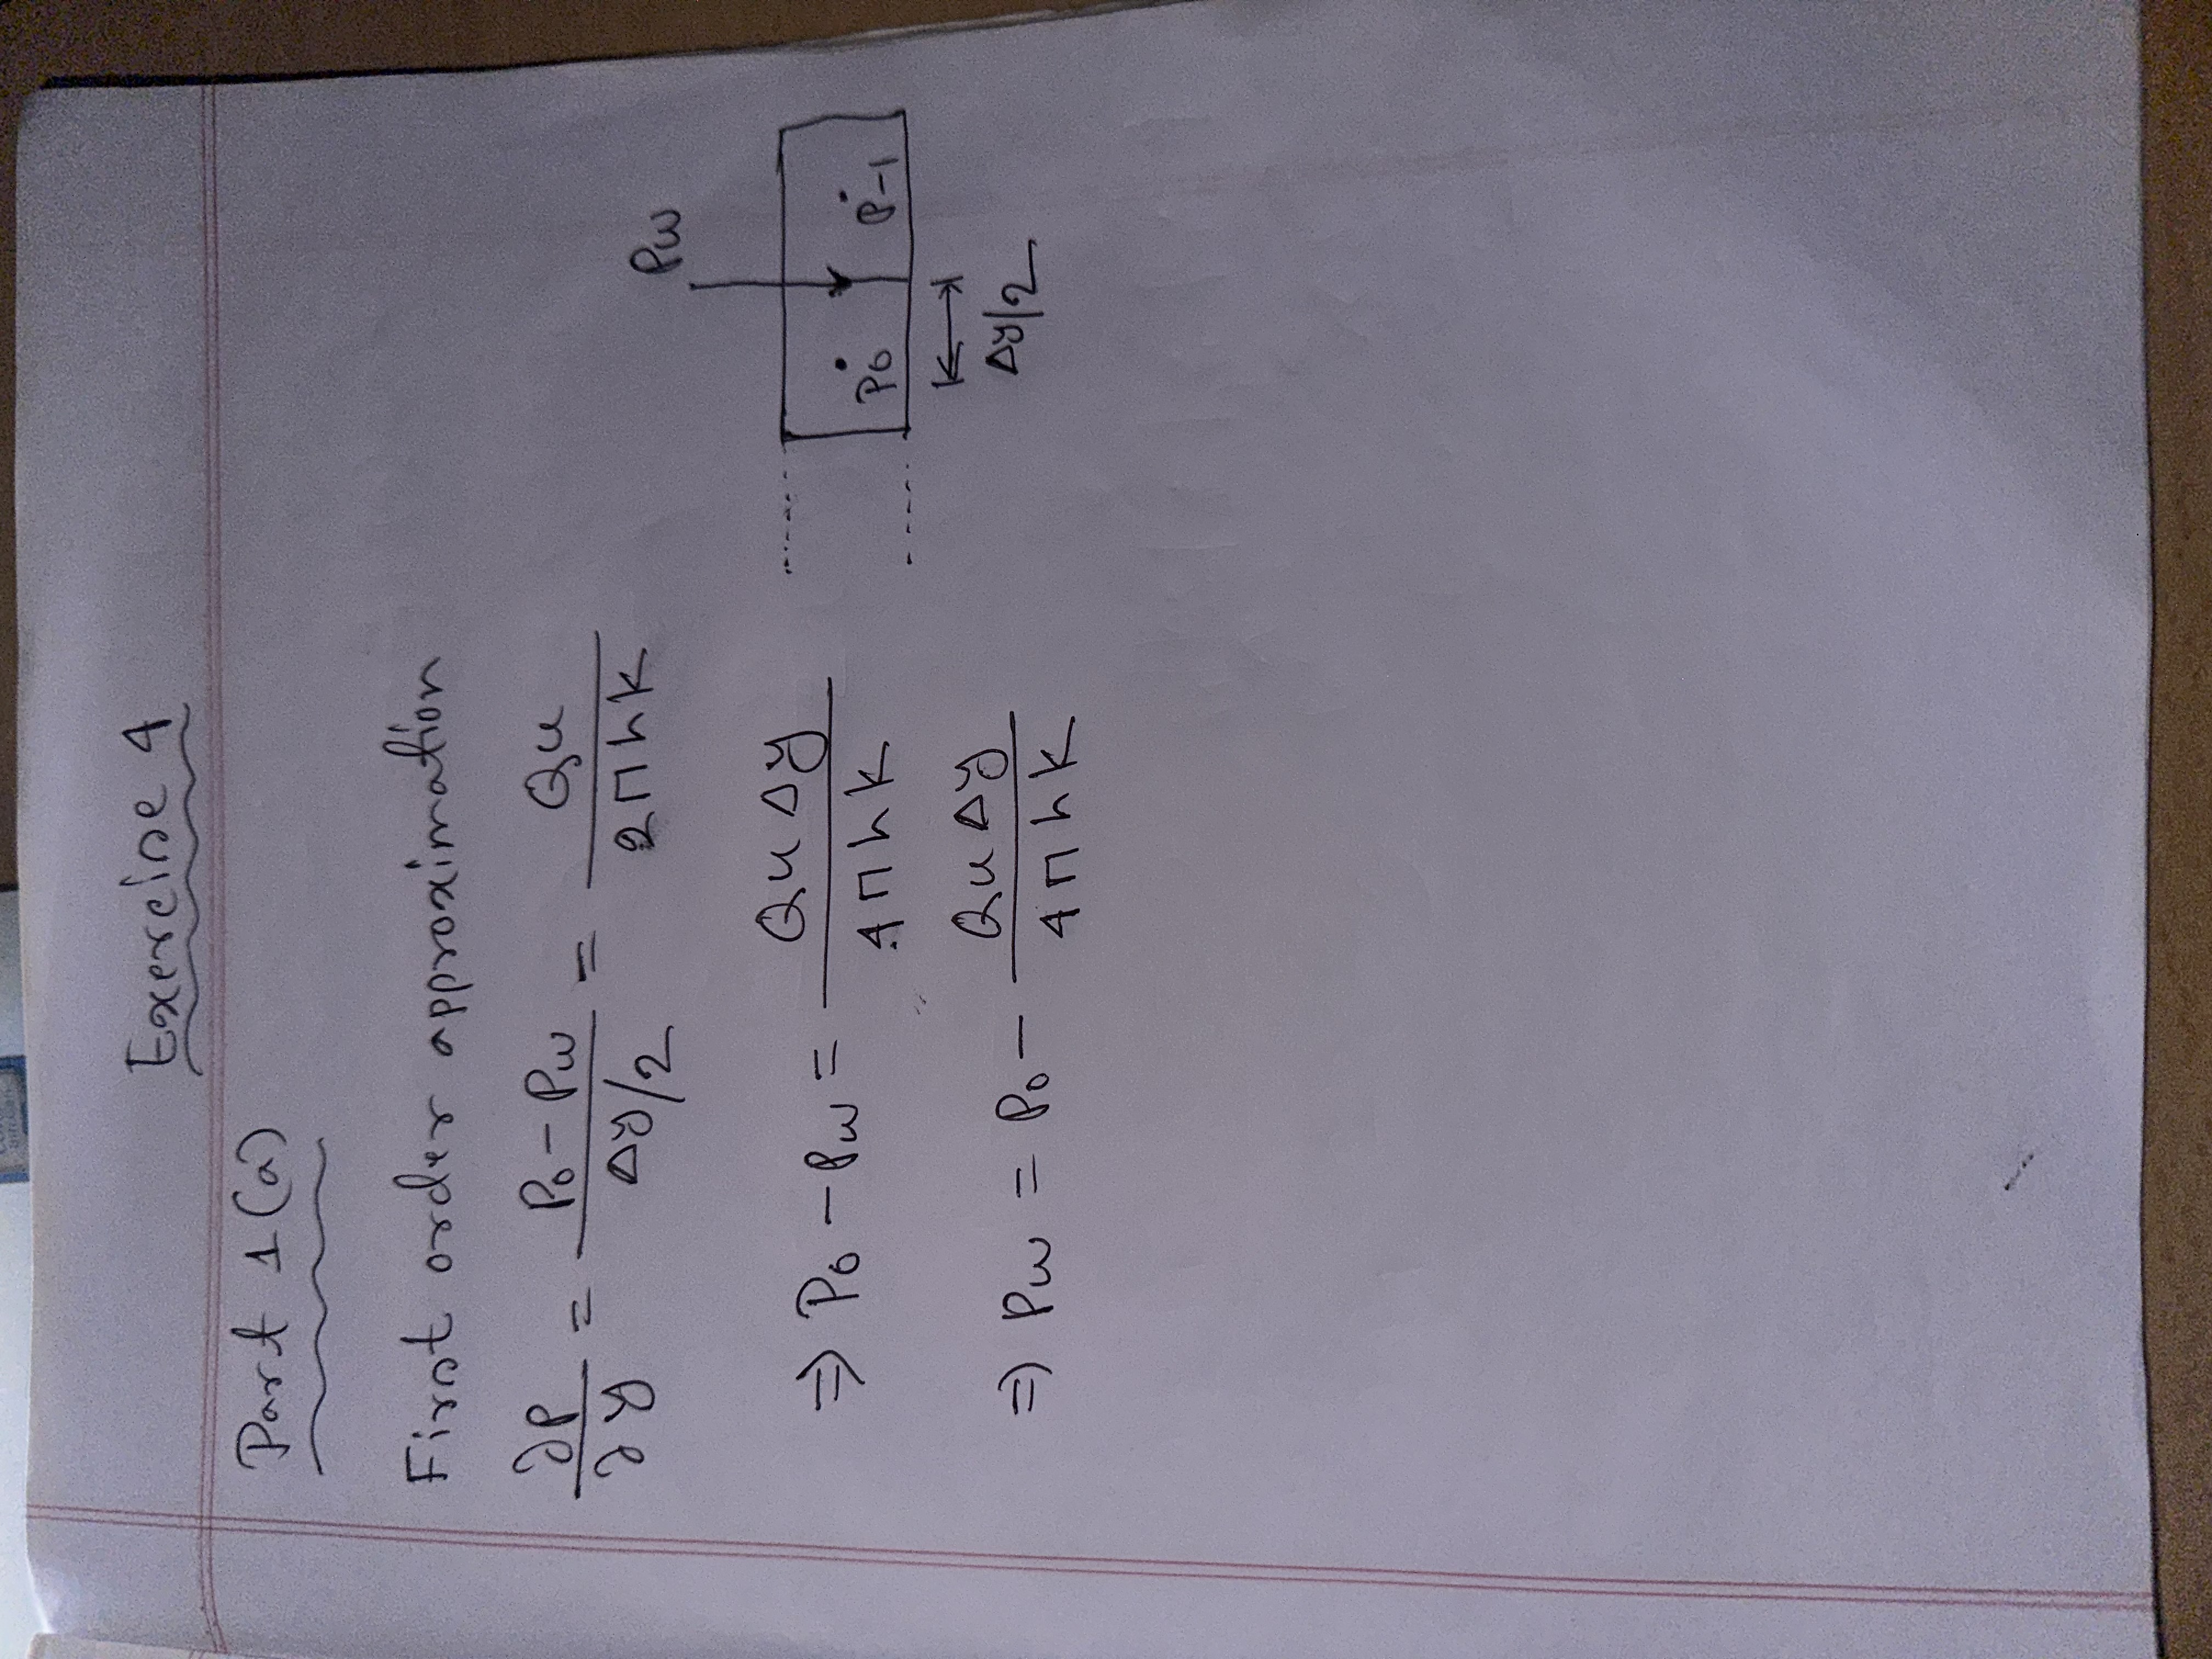 Exercise 4
Part 1(a)
First order approximation
∂P/∂y = (P₀ - Pw)/(Δy/2) = Qu/(2πhK)
⇒ P₀ - Pw = QuΔy/(4πhK)
⇒ Pw = P₀ - QuΔy/(4πhK)
Pw
P₀ P₋₁
Δy/2